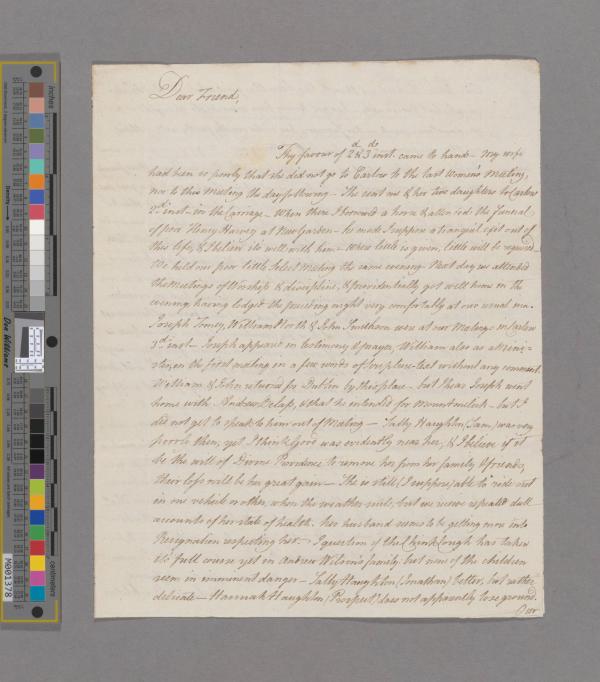 Dear Friend,
d do
Thy favour of 2 & 3 inst. came to hand - My wife
had been so poorly that she did not go to Carlow to the last women's Meeting,
nor to this Meeting the day following - She sent me & her two daughters to Carlow
2d inst - in the Carriage - When there I borrowed a horse & attended the funeral
of poor Henry Harvey at New Garden - he made I suppose a tranquil exit out of
this life, & I believe it's well with him - where little is given, little will be required -
We held our poor little Select Meeting the same evening. Next day we attended
the Meetings of Worship & discipline, & providentially got well home in the
evening, having lodged the preceding night very comfortably at our usual inn.
Joseph William North & John were at our Meetings in Carlow
3rd inst - Joseph appeared in testimony & prayer, William also as a Minis-
ter, in the first meeting in a few words of Scripture-text without any comment.
William & John returned for Dublin by this place - but I hear Joseph went
home with Andrew & that he intended for Mountmelick - but I
did not get to speak to him out of Meeting - Sally Haughton (Sam.) was very
poorly then, yet I think Good was evidently near her, & I believe if it
be the will of Divine Providence to remove her from her family & friends,
their loss will be her great gain - She is still (I suppose) able to ride out
in one vehicle or other, when the weather suits, but we receive repeated dull
accounts of her state of health. her husband seems to be getting more into
Resignation respecting her. - I question if the Chincough has taken
its full course yet in Andrew family, but none of the children
seem in imminent danger - Sally Haughton (Jonathan) better, but rather
delicate - Hannah Haughton (Prospect) does not apparently lose ground.
Our
inches
centimeters
Density
Don Williams
M001378